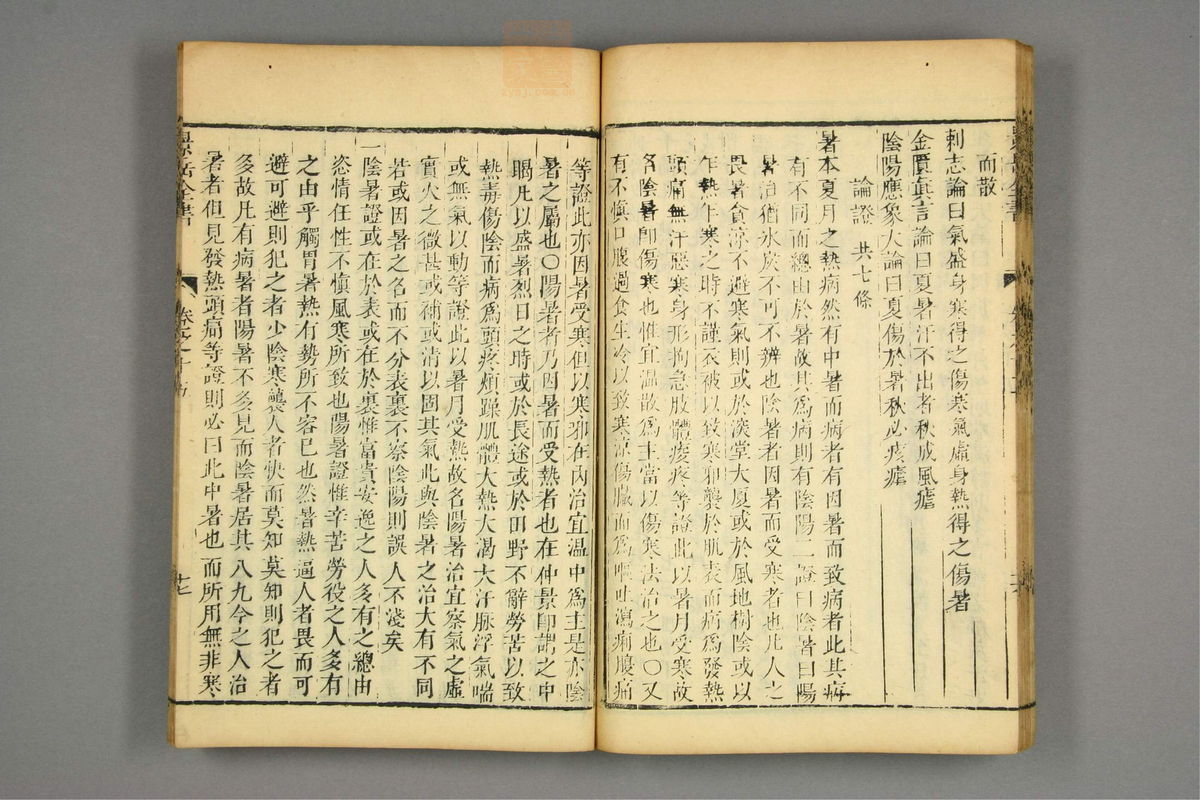 而散
刺志論曰氣盛身寒得之傷寒氣虛身熱得之傷暑
金匱眞言論曰夏暑汗不出者秋成風瘧
陰陽應象大論曰夏傷於暑秋必痎瘧
論證 共七條
暑本夏月之熱病然有中暑而病者有因暑而致病者此其病
有不同而總由於暑故其爲病則有陰陽二證曰陰暑曰陽
暑治猶氷炭不可不辨也陰暑者因暑而受寒者也凡人之
畏暑貪涼不避寒氣則或於深堂大厦或於風地樹陰或以
乍熱乍寒之時不謹衣被以致寒邪襲於肌表而病爲發熱
頭痛無汗惡寒身形拘急肢體痠疼等證此以暑月受寒故
名陰暑卽傷寒也惟宜温散爲主當以傷寒法治之也○又
有不愼口腹過食生冷以致寒涼傷臟而爲嘔吐瀉痢腹痛
等證此亦因暑受寒但以寒邪在內治宜温中爲主是亦陰
暑之屬也○陽暑者乃因暑而受熱者也在仲景卽謂之中
暍凡以盛暑烈日之時或於長途或於田野不辭勞苦以致
熱毒傷陰而病爲頭疼煩躁肌體大熱大渴大汗脉浮氣喘
或無氣以動等證此以暑月受熱故名陽暑治宜察氣之虛
實火之微甚或補或清以固其氣此與陰暑之治大有不同
若或因暑之名而不分表裏不察陰陽則誤人不淺矣
一陰暑證或在於表或在於裏惟富貴安逸之人多有之總由
恣情任性不愼風寒所致也陽暑證惟辛苦勞役之人多有
之由乎觸冒暑熱有勢所不容已也然暑熱逼人者畏而可
避可避則犯之者少陰寒襲人者快而莫知莫知則犯之者
多故凡有病暑者陽暑不多見而陰暑居其八九今之人治
暑者但見發熱頭痛等證則必曰此中暑也而所用無非寒
景岳全書
卷之十五
十七
zysj.com.cn